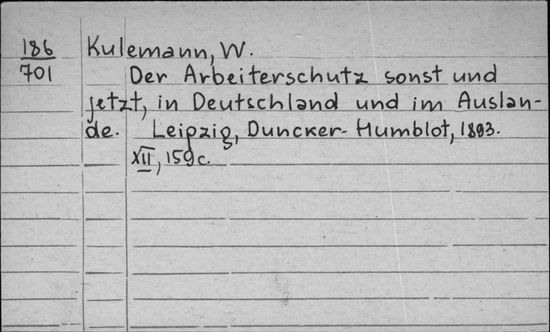 186 Kulemann, W.
701 Der Arbeiterschutz sonst und
jetzt, in Deutschland und im Auslan-
de. Leipzig, Duncker-Humblot, 1893.
XII, 159 c.